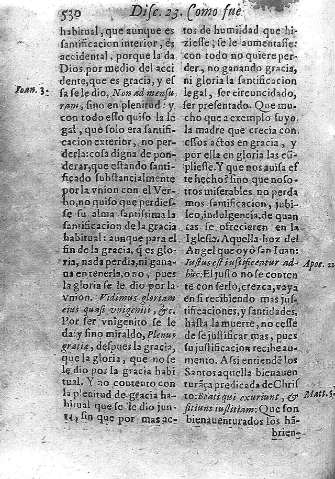 530 Disc. 23. Como fue
habitual, que aunque es
santificacion interior, es
accidental, porque la da
Dios por medio del acci
dente, que es gracia, y es
sa se le dio, Non ad mensu
Ioan. 3.
ram, sino en plenitud: y
con todo esso quiso la le
gal, que solo era santifi-
cacion exterior, no per-
derla: cosa digna de pon-
derar, que estando santi-
ficado substancialmente
por la vnion con el Ver-
bo, no quiso que perdies-
se su alma santissima la
santificacion de la gracia
habitual: aunque para el
fin de la gracia, q̃ es glo-
ria, nada perdia, ni gana-
ua en tenerla, o no, pues
la gloria se le dio por la
vnion. Vidimus gloriam
eius quasi vnigeniti, &c.
Por ser vnigenito se le
da: y sino miraldo, Plenus
gratiæ, despues la gracia,
que la gloria, que no se
le dio por la gracia habi
tual. Y no contento con
la plenitud de gracia ha-
bitual que se le dio jun-
, sin que por mas ac-
tos de humildad que hi-
ziesse, se le aumentasse:
con todo no quiere per-
der, no ganando gracia,
ni gloria la santificacion
legal, ser circuncidado,
ser presentado. Que mu-
cho que a exemplo suyo
la madre que crecia con
essos actos en gracia, y
por ella en gloria las cũ-
pliesse. Y que nos auisa es
te hecho? sino que noso-
tros miserables no perda
mos santificacion, jubi-
leo, indulgencia, de quan
tas se ofrecieren en la
Iglesia. Aquella boz del
Angel que oyò san Iuan:
Iustus est iustificetur ad-
Apoc. 22
huc. El justo no se conten
te con serlo, crezca, vaya
en si recibiendo mas jus-
tificaciones, y santidades,
hasta la muerte, no cesse
de se justificar mas, pues
su justificacion recibe au-
mento. Assi entiendẽ los
Santos aquella bienauen
turãça predicada de Chris
to: Beati qui exuriunt, &
Matt. 5.
sitiunt iustitiam: Que son
bienauenturados los hã-
brien-